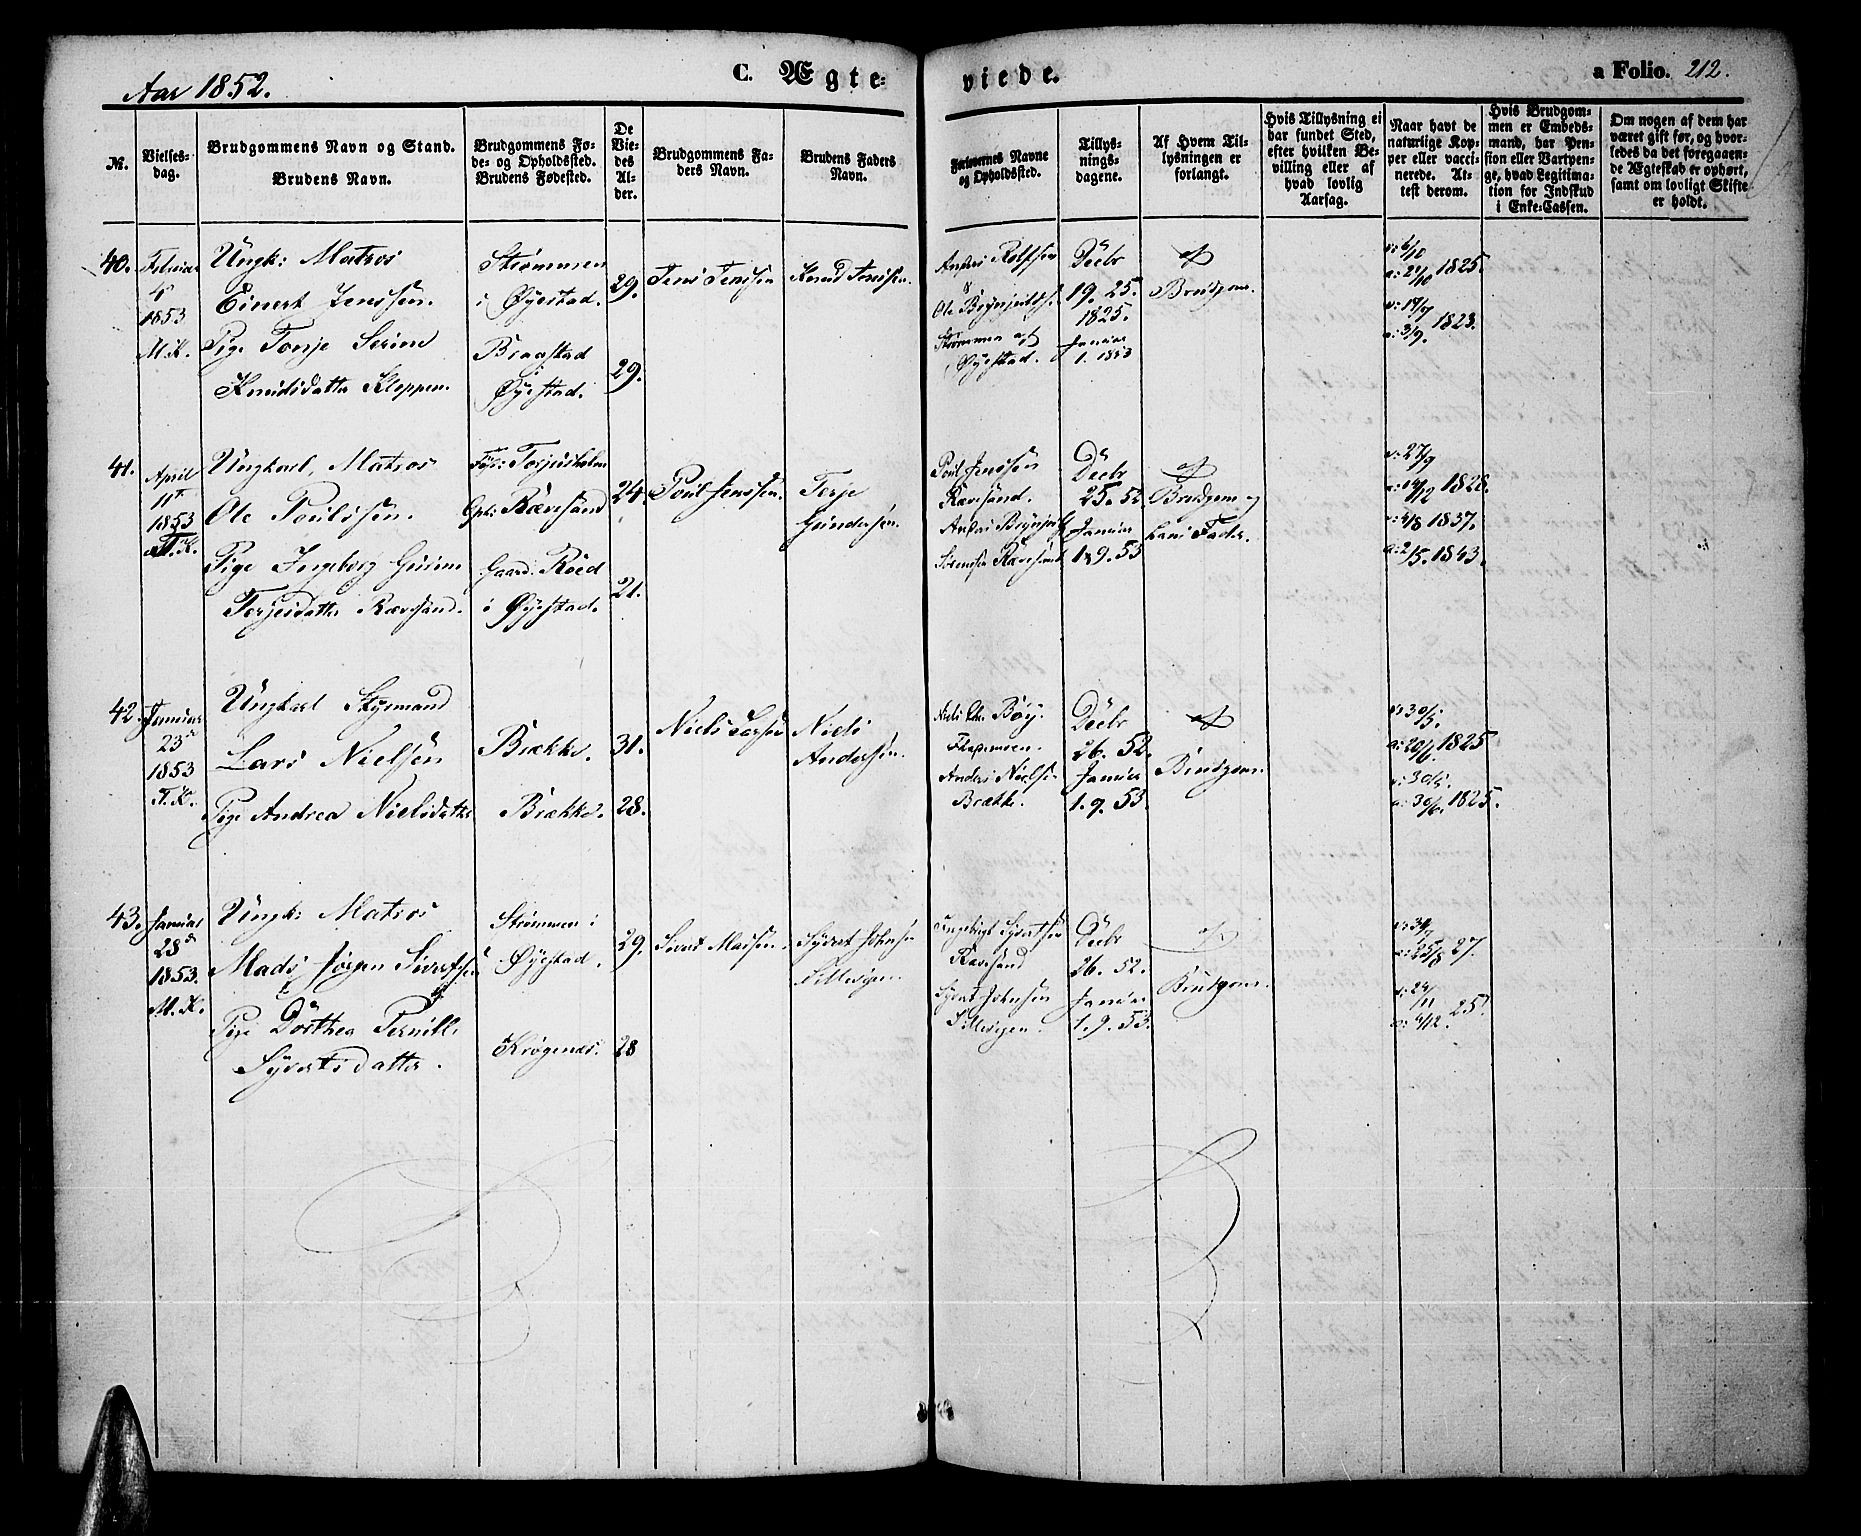 Aar 1852.
C. Ægte-
viede.
a Folio. 212.
№.
Vielses-
dag.
Brudgommens Navn og Stand.
Brudens Navn.
Brudgommens Fø-
de- og Opholdssted.
Brudens Fødested.
De
Vie-
des
Al-
der.
Brudgommens Fa-
ders Navn.
Brudens Faders
Navn.
Forlovernes Navne
og Opholdssted.
Tillys-
nings-
dagene.
Af Hvem Til-
lysningen er
forlangt.
Hvis Tillysning ei
har fundet Sted,
efter hvilken Be-
villing eller af
hvad lovlig
Aarsag.
Naar havt de
naturlige Kop-
per eller vacci-
nerede. At-
test derom.
Hvis Brudgom-
men er Embeds-
mand, har Pen-
sion eller Vartpen-
ge, hvad Legitima-
tion for Indskud
i Enke-Cassen.
Om nogen af dem har
været gift før, og hvor-
ledes da det foregaaen-
de Ægteskab er ophørt,
samt om lovligt Skifte
er holdt.
40.
Februar
1853
M.K.
Ungk: Matros
Einert Jenssen.
Pige Tonje Serine
Knudsdatter Kloppen.
Strømmen
i Øyestad.
Braastad
i
Øyestad.
29.
29.
Jens Jenssen
Knud Tomssen.
Anders Rolfsen
&
Ole Brynjuldss.
Strømmen af
Øyestad.
Decbr
19. 25.
1825.
Januar
1. 1853
af
Brudgom.
v: 6/10
a: 24/10 1825.
v: 14/7
a: 3/9. 1823.
41.
April
11te
1853
Ungkarl, Matros
Ole Poulssen.
Pige Ingeborg Gurine
Terjesdatter Rævesand.
Fød: Torjusholm
Oph: Rævesand
Gaard. Roed
i Øyestad.
24.
21.
Poul Jenssen.
Terje
Gundersen.
Poul Jenssen
Rævesand.
Anders Brynjulf
Sørenssen Rævesand
Decbr
25. 52
Januar
1 & 9. 53
af
Brudgom og
hans Fader.
v: 27/9
a: 14/12 1828.
v: 4/8 1837.
a: 2/5. 1843.
42.
Januar
23de
1853
T.K.
Ungkarl Skysmand
Lars Nielsen
Pige Andrea Nielsdatter
Brække.
Brække.
31.
28.
Niels Larsen
Niels
Anderssen.
Niels Chr. Bøy.
Anders Nielsen
Brække.
Decbr
26. 52.
Januar
1. 9. 53.
af
Brudgom.
v: 30/5.
a: 20/6 1825
v: 30/5.
a: 30/6. 1825.
43.
Januar
28de
1853.
M.K.
Ungk: Matros
Mads Jørgen Sivertsen
Pige Dorthea Pernille
Syvertsdatter.
Strømmen i
Øyestad.
Krøgenes.
29.
28
Sivert Madsen
Syvert Johnsen
Sillevigen.
Ingebrigt Syvertsen
Rævesand
Syvert Johnsen
Sillevigen.
Decbr
26. 52.
Januar
1. 9. 53.
af
Brudgom.
a: 25/8 27.
v: 24/11
a: 4/12. 25.